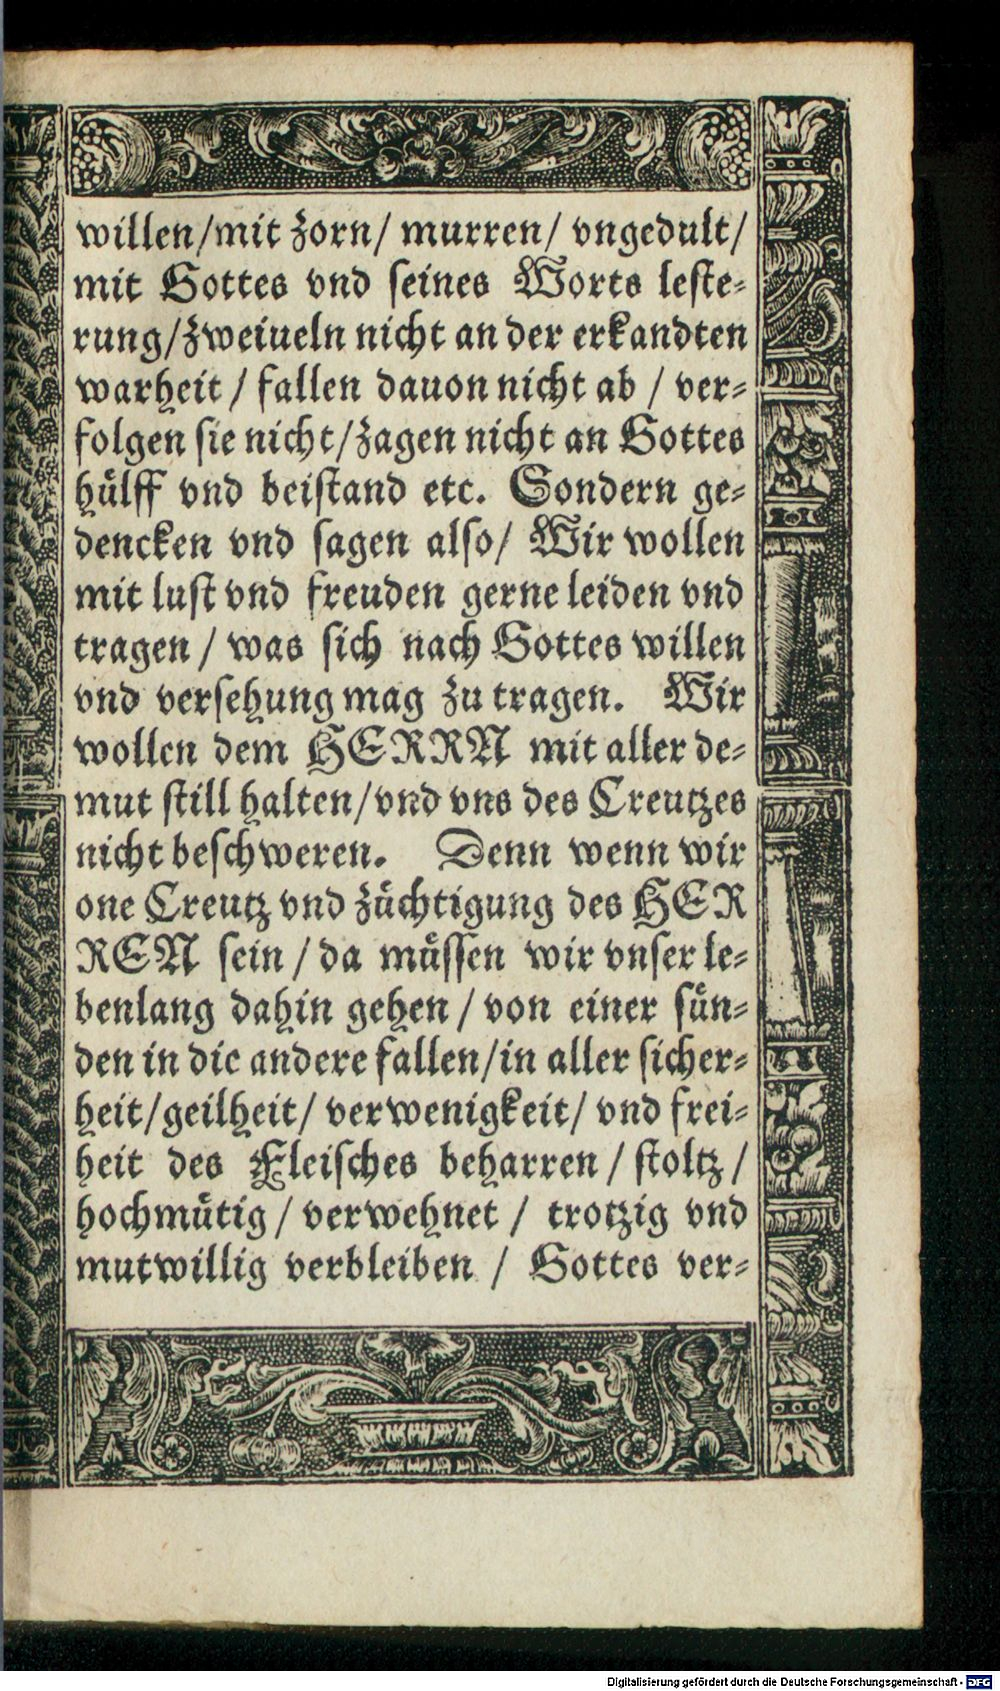 willen/mit zorn/ murren/ vngedult/
mit Gottes vnd seines Worts leste-
rung/zweiueln nicht an der erkandten
warheit / fallen dauon nicht ab / ver-
folgen sie nicht/zagen nicht an Gottes
hülff vnd beistand etc. Sondern ge-
dencken vnd sagen also/ Wir wollen
mit lust vnd freuden gerne leiden vnd
tragen / was sich nach Gottes willen
vnd versehung mag zu tragen. Wir
wollen dem HERRN mit aller de-
mut still halten/vnd vns des Creutzes
nicht beschweren. Denn wenn wir
one Creutz vnd züchtigung des HER
REN sein / da müssen wir vnser le-
benlang dahin gehen / von einer sün-
den in die andere fallen/in aller sicher-
heit/geilheit/ verwenigkeit/ vnd frei-
heit des Fleisches beharren / stoltz /
hochmütig / verwehnet / trotzig vnd
mutwillig verbleiben / Gottes ver-
Digitalisierung gefördert durch die Deutsche Forschungsgemeinschaft - DFG